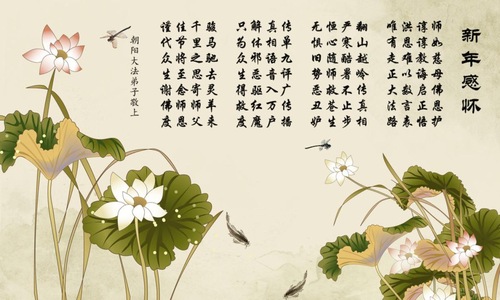 新年感怀
师如慈母佛恩护
谆谆教诲启正悟
洪恩难以数言表
唯有走正大法路
翻山越岭传真相
严寒酷暑不止步
恒心随师救苍生
无惧旧势恶丑妒
传单九评广传播
真相语音入万户
解体邪恶驱红魔
只为众生得救度
骏马驰去灵羊来
千里之思寄师父
佳节将至念师恩
谨代众生谢佛度
朝阳大法弟子敬上